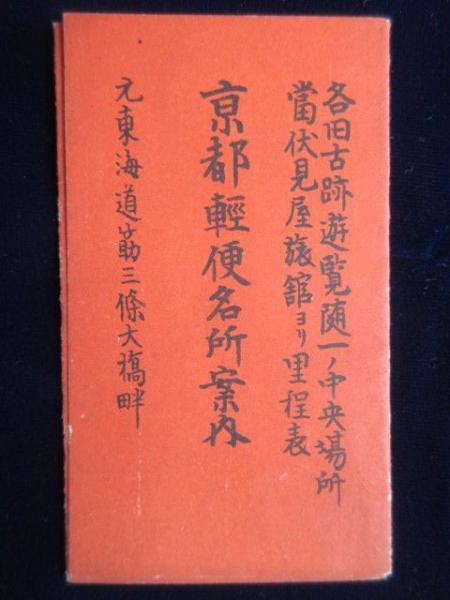 各旧古跡遊覧随一ノ中央場所
當伏見屋旅舘ヨリ里程表
京都輕便名所案内
元東海道筋三條大橋畔